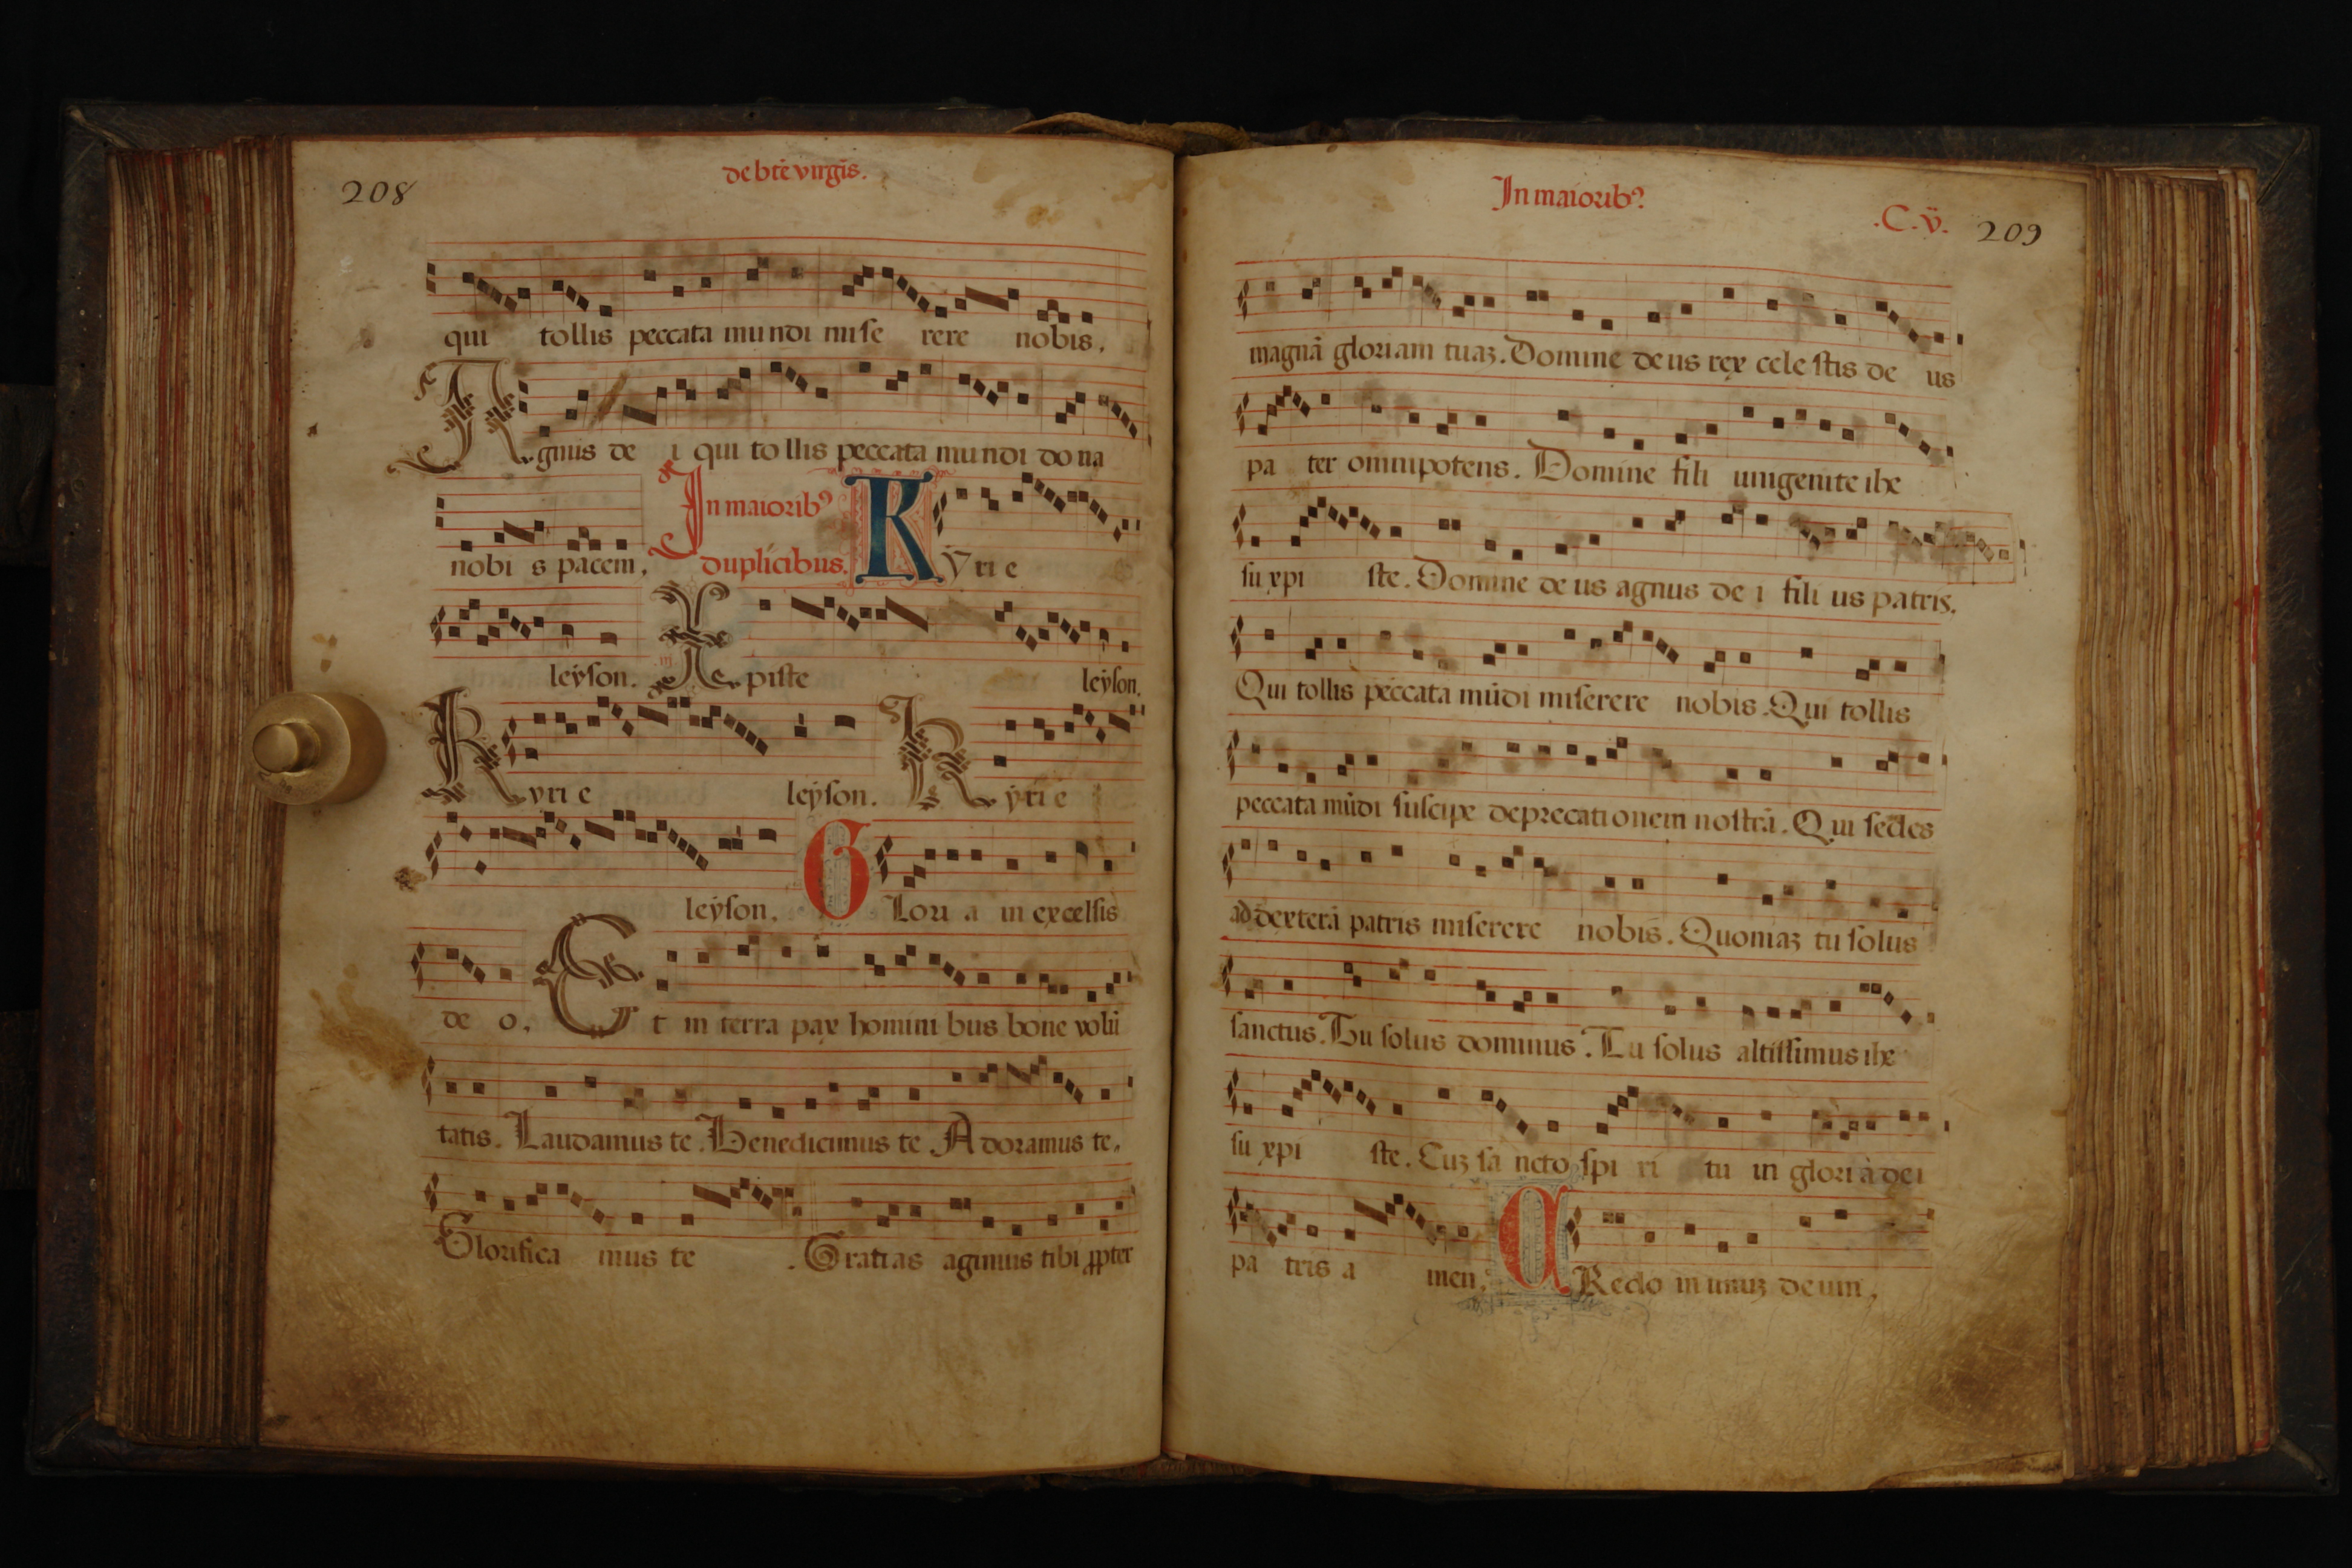 208
de bte virgis.
qui tollis peccata mundi mise rere nobis.
Agnus de i qui to llis peccata mundi do na
nobi s pacem. In maiorib⁹ Kyrie
duplicibus.
leyson. Xpiste leyson.
Kyri e leyson. Kyri e
leyson. Glori a in excelsis
de o. Et in terra pax homini bus bone volū
tatis. Laudamus te. Benedicimus te. Adoramus te.
Glorifica mus te. Gratias agimus tibi ꝓpter
In maiorib⁹
.C.v. 209
magnā gloriam tuaꝫ. Domine deus rex cele stis de us
pa ter omnipotens. Domine fili unigenite ihe
su xpi ste. Domine deus agnus de i fili us patris.
Qui tollis peccata mūdi miserere nobis. Qui tollis
peccata mūdi suscipe deprecationem nostrā. Qui sedes
ad dexterā patris miserere nobis. Quoniaꝫ tu solus
sanctus. Tu solus dominus. Tu solus altissimus ihe
su xpi ste. Cuꝫ sa ncto spi ri tu in gloria dei
pa tris a men. CRedo in unuꝫ deum.